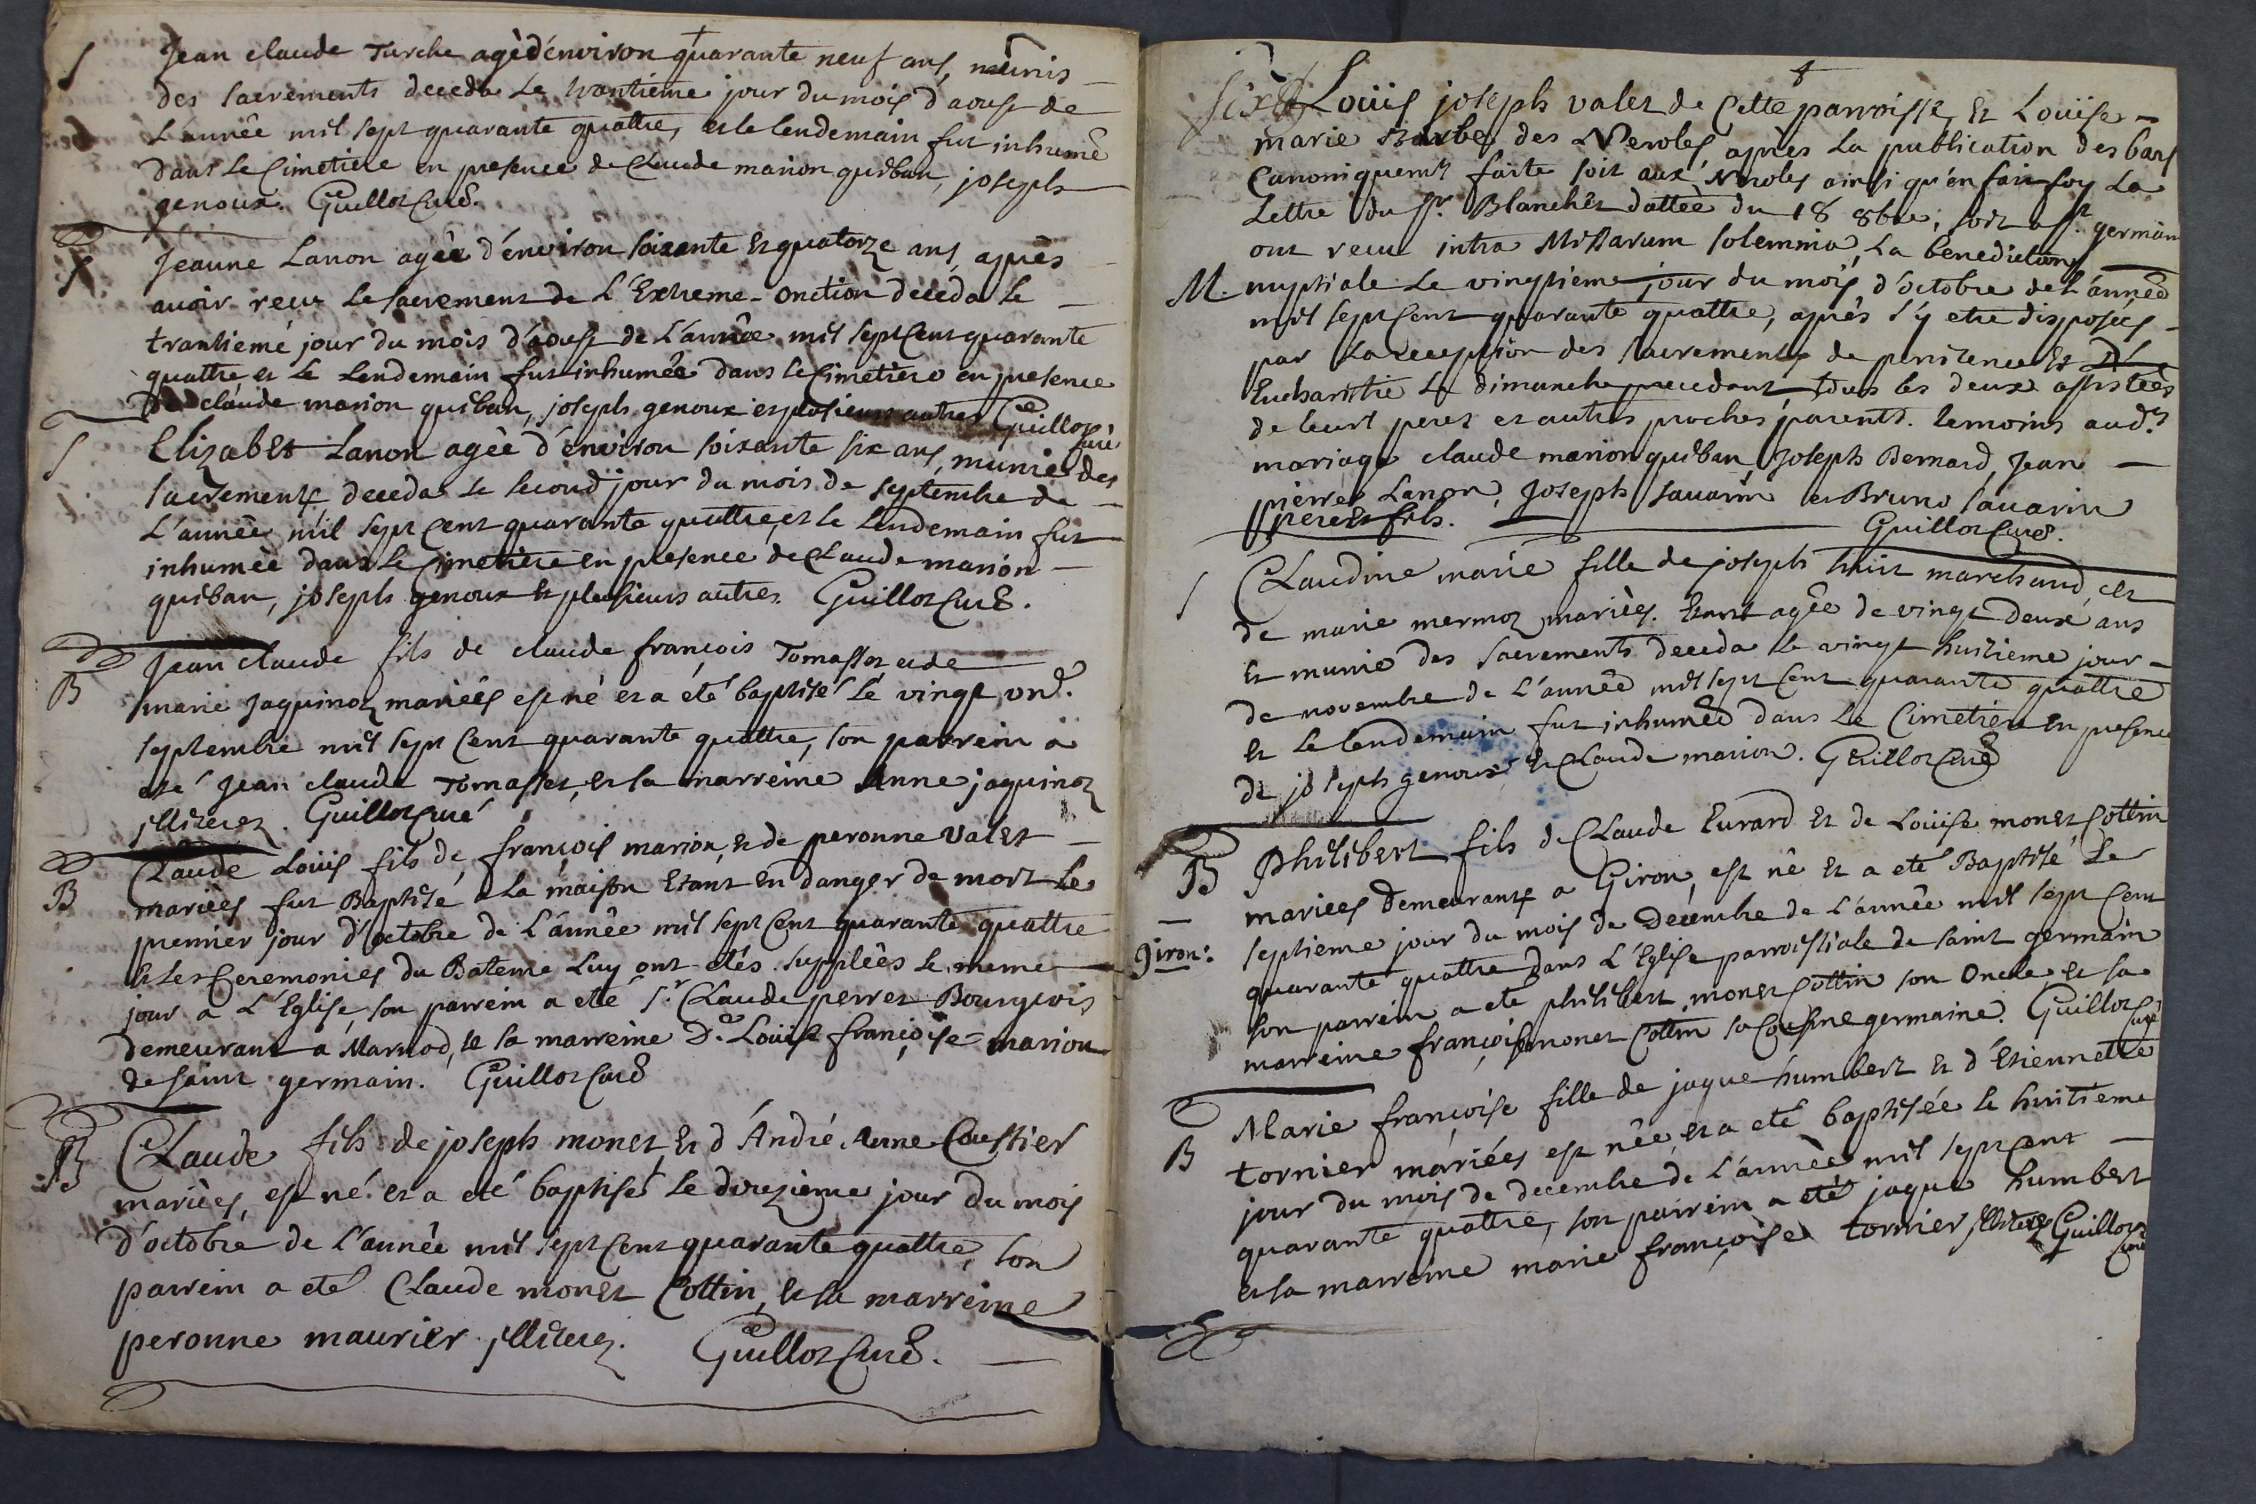 S
Jean claude Turche agè d'environ quarante neuf ans, munis
des sacrements deceda Le trantième jour du mois d'aoust de
L'année mil sept quarante quattre, et le lendemain fut inhumé
dans Le Cimetiere en presence de Claude marion quiban, joseph
genoux. Guillot Curé.
Jeanne Lanon agée d'énviron soixante et quatorze ans, après
avoir reçu Le sacrement de L'Extreme-Onction deceda le
trantieme jour du mois d'aoust de L'année mil sept Cent quarante
quattre, et Le Lendemain fut inhumée dans Le Cimetiere en presence
De claude marion quiban, joseph genoux et plosieurs autres Guillot
Curé
S
Elizabet Lanon agèe d'énviron soixante six ans, munie des
sacrements, deceda le second jour du mois de septembre de
L'année mil sept Cent quarante quattre, et le Lendemain fut
inhumèe dans le Cimetiere en presence de Claude marion
quiban, joseph genoux et plusieurs autres Guillot Curé.
B
Jean claude fils de claude françois Tomasset et de
marie Jaquinot mariées est né et a été baptisé Le vingt un.e
septembre mil sept Cent quarante quattre, son parrein a
eté Jean claude Tomasset, et la marreine Anne jaquinot
illiterez. Guillot Curé
B
Claude Loüis fils de, françois marion, et de peronne Valet
mariées fut Baptisé a La maison Etant En danger de mort Le
premier jour d'octobre de L'année mil sept Cent quarante quattre
et les Ceremonies du Bateme Luy ont etés supplées le meme
jour a L'Eglise, son parrein a eté S.r Claude perret Bourgeois
demeurant a Marnod, et la marreine D.e Loüise françoise marion
de saint germain. Guillot Curé
B
Claude fils de joseph monet, Et d'André Anne Coustier
mariées, est né et a eté baptisé Le dixzieme jour du mois
d'octobre de L'année mil sept Cent quarante quattre, son
parrein a eté Claude monet Cottin, et la marreine
peronne maurier illiterez. Guillot Curé.
Loüis joseph valet de Cette parroisse, Et Loüise
marie Barbe des Neroles, après La publication des bans
Canoniquem.t faite soit aux Neroles ainsi qu'en fait foy La
Lettre du Sr. Blanchet dattée du 18 8bre, soit a St. germain
ont recu intra Missarum solemnia, La benediction
M.
nuptiale Le vingtieme jour du mois d'octobre de L'année
mil sept Cent quarante quattre, après s'y etre disposés
par La reception des sacrements de penitence et D'
Eucharistie Le dimanche precedant, tous les deux assistées
de leurs peres et autres proches parents. temoins aud.t
mariage claude marion quiban, Joseph Bernard, Jean
pierre Lanon, Joseph savarin et Bruno savarin
pere et fils.
Guillot Curé.
S
Claudine marie fille de joseph huit marchand, et
de marie mermoz mariées. Etant agée de vingt deux ans
et munie des sacrements deceda le vingt huitieme jour
de novembre de L'année mil sept Cent quarante quattre
et Le Lendemain fut inhumée dans Le Cimetiere En presence
de joseph genoux, et Claude marion. Guillot Curé
B
Giron:
Philibert fils de Claude Evrard Et de Loüise monet Cottin
mariees Demeurants a Giron, est né Et a eté Baptisé Le
septieme jour du mois de Decembre de L'année mil sept Cent
quarante quattre dans L'Eglise parroissiale de saint germain
son parrein a eté philibert monet Cottin son Oncle et sa
marreine françoise monet Cottin sa Cousine germaine. Guillot Curé
B
Marie françoise fille de jaque humbert Et d'Etiennette
tornier mariées est née, et a eté baptisée le huitieme
jour du mois de decembre de L'année mil sept cent
quarante quattre, son parrein a eté jaque humbert
et la marreine marie françoise tornier illiterez Guillot
Curé